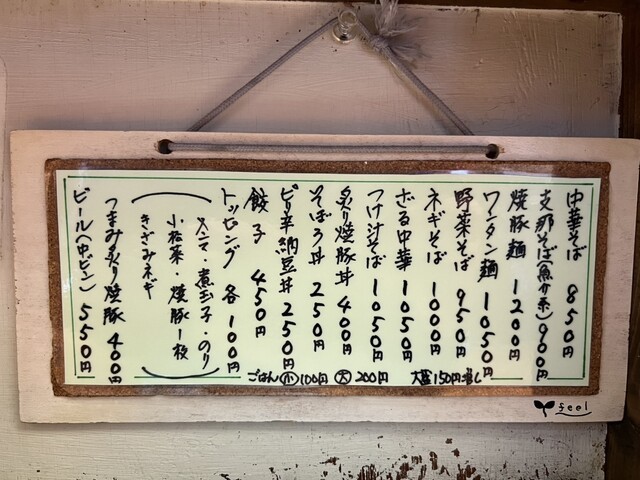 中華そば 850円
支那そば(魚介系)900円
焼豚麺 1200円
ワンタン麺 1050円
野菜そば 950円
ネギそば 1000円
ざる中華 1050円
つけ汁そば 1050円
炙り焼豚丼 400円
そぼろ丼 250円
ピリ辛納豆丼 250円
餃子 450円
トッピング 各100円
メンマ・煮玉子・のり
小松菜・焼豚1枚
きざみネギ
つまみ炙り焼豚 400円
ビール(中ビン) 550円
ごはん 小 100円 大 200円 大盛150円増し
feel